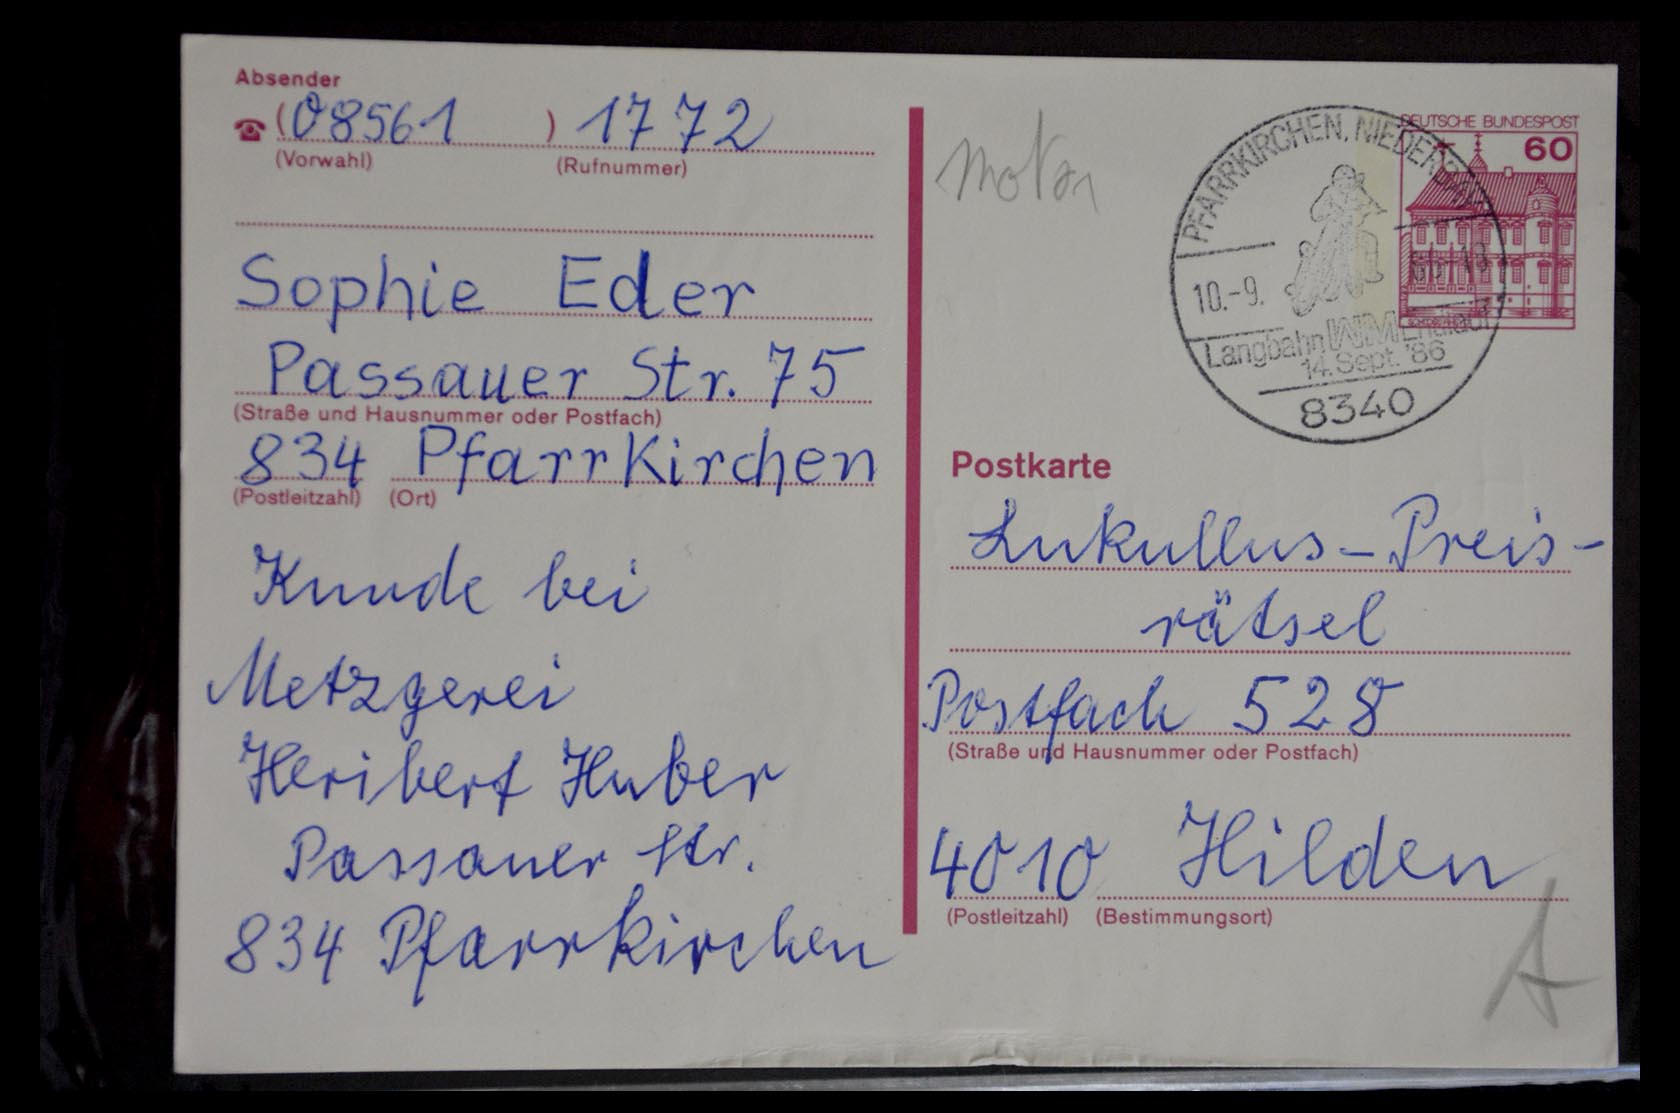 Absender
(08561 ) 1772
(Vorwahl) (Rufnummer)
Sophie Eder
Passauer Str. 75
(Straße und Hausnummer oder Postfach)
834 Pfarrkirchen
(Postleitzahl) (Ort)
Kunde bei
Metzgerei
Heribert Huber
Passauer Str.
834 Pfarrkirchen
DEUTSCHE BUNDESPOST
60
PFARRKIRCHEN, NIEDERBAY
10.-9.
Langbahn WM Endlauf
14. Sept. '86
8340
Postkarte
Lukullus-Preis-
rätsel
Postfach 528
(Straße und Hausnummer oder Postfach)
4010 Hilden
(Postleitzahl) (Bestimmungsort)
A